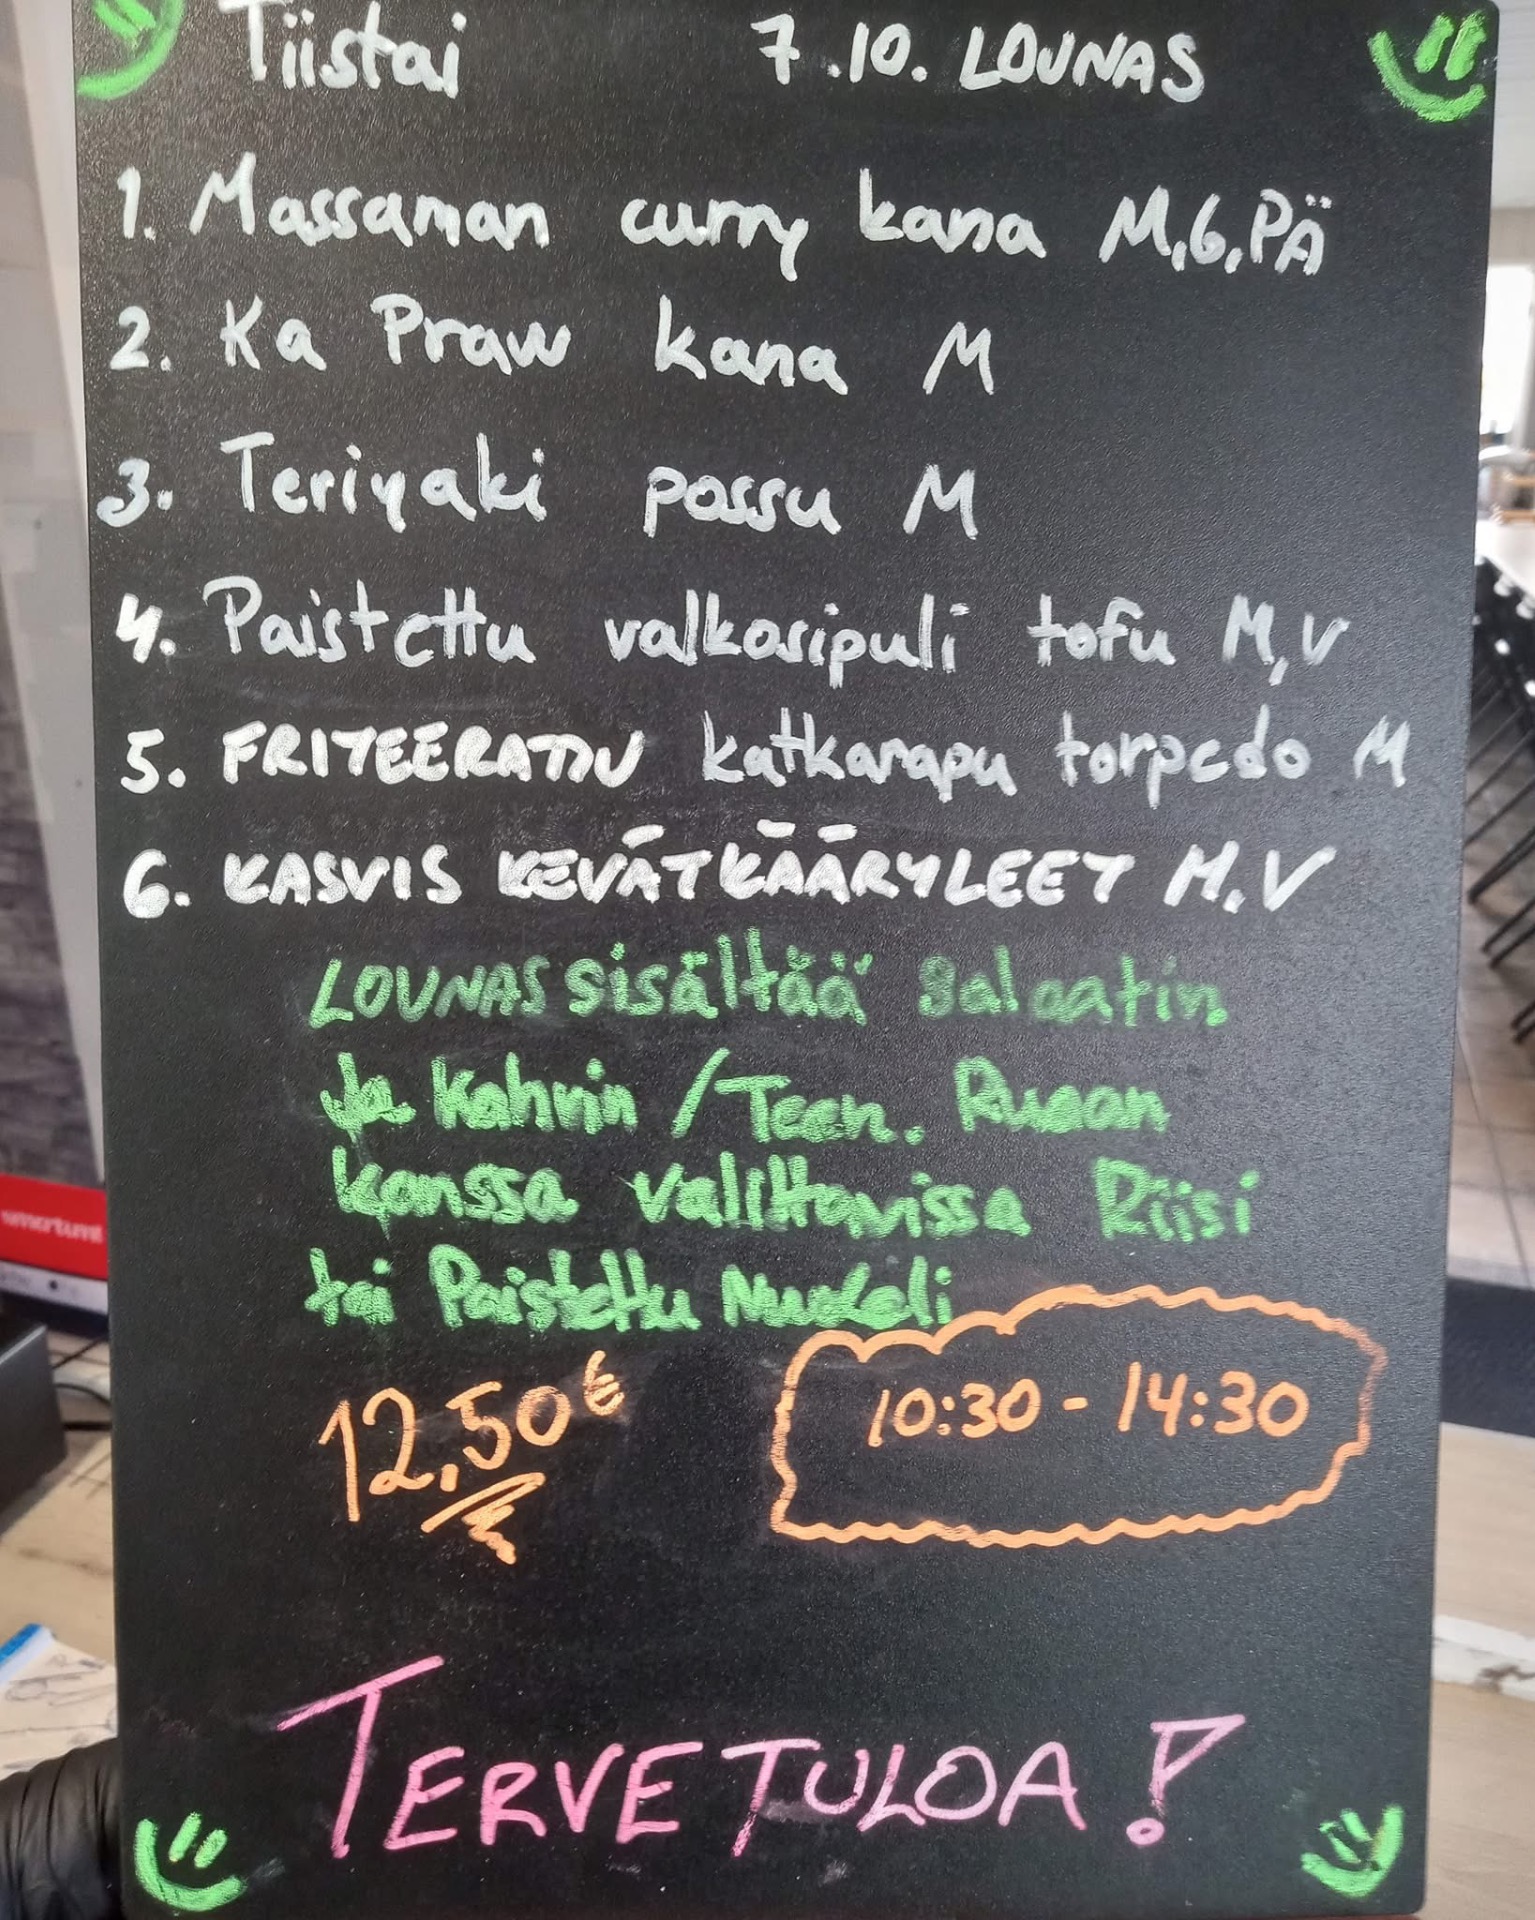 Tiistai 7.10. LOUNAS
1. Massaman curry kana M,G,PÄ
2. Ka Praw kana M
3. Teriyaki possu M
4. Paistettu valkosipuli tofu M,V
5. FRITEERATTU katkarapu torpedo M
6. KASVIS KEVÄTKÄÄRYLEET M.V
LOUNAS sisältää salaatin
Ja Kahvin / Teen. Ruoan
kanssa valittavissa Riisi
tai Paistettu Nuudeli
12,50€
10:30 - 14:30
TERVETULOA!
smartum